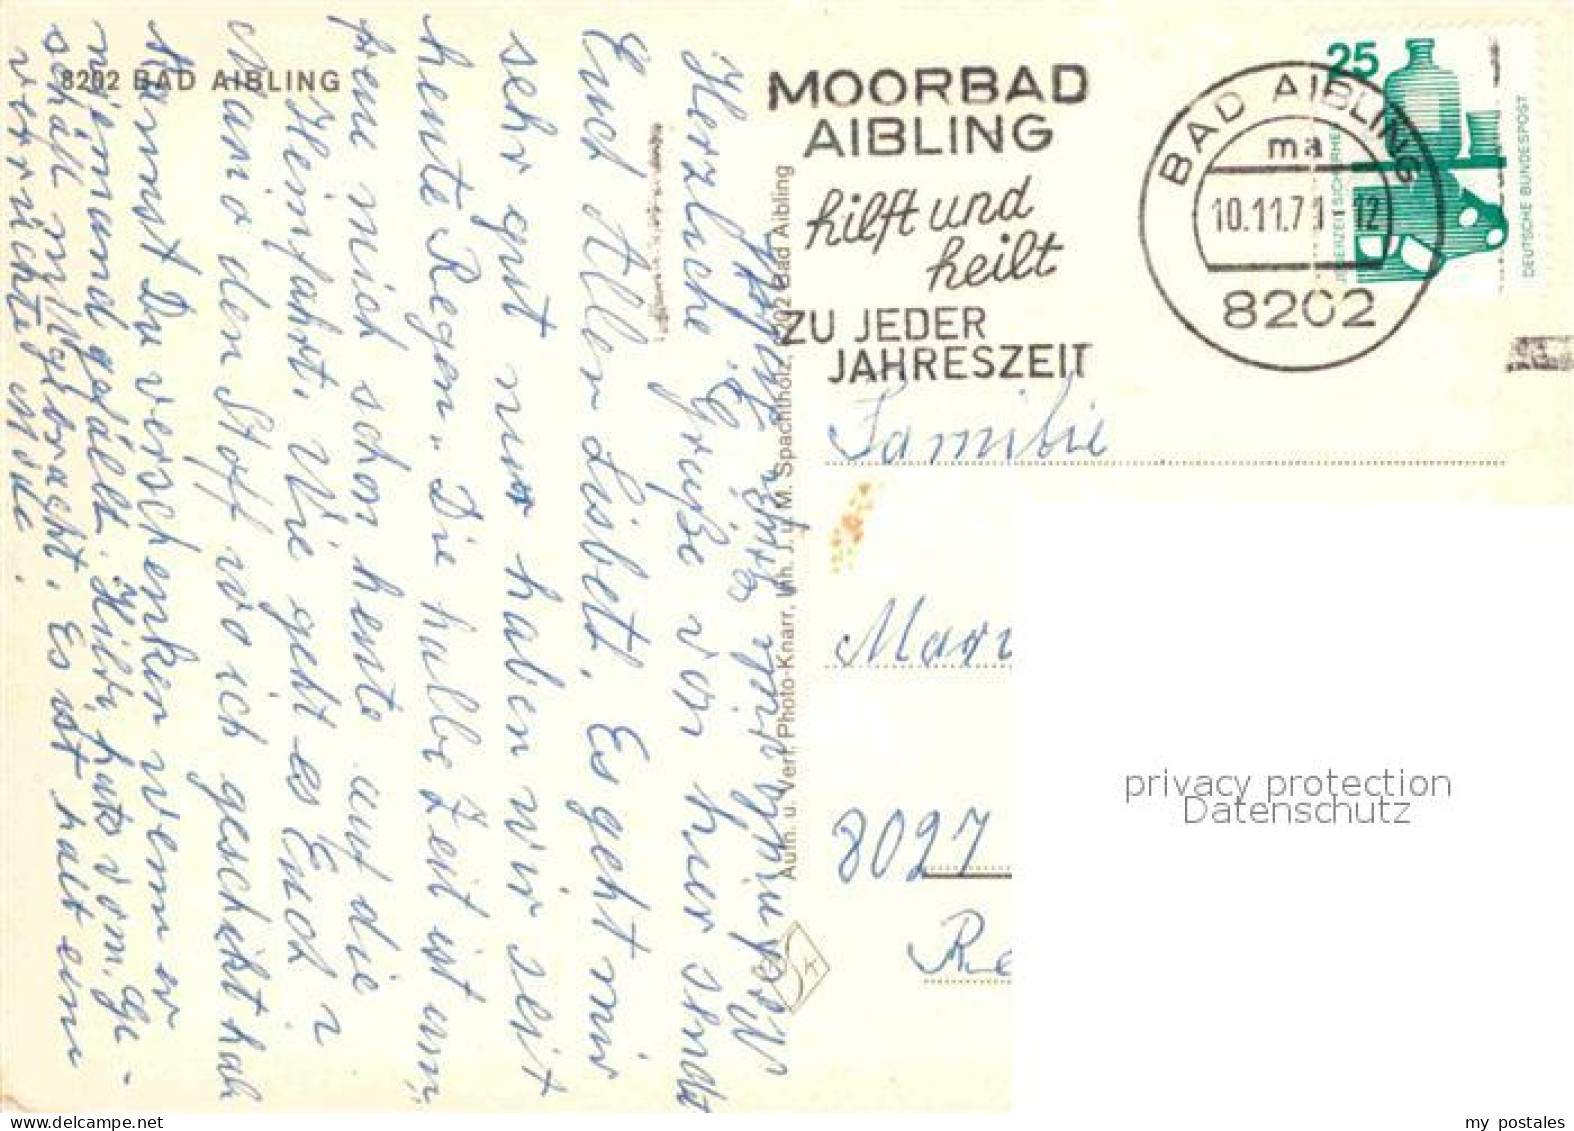 8202 BAD AIBLING
Herzliche Grüße von hier sendt
Euch Allen Lisbett. Es geht mir
sehr gut nur haben wir seit
heute Regen. Die halbe Zeit ist um,
freue mich schon heute auf die
Heimfahrt. Wie geht es Euch
den Stoff wo ich geschickt hab
kannst Du verschenken wenn er
niemand gefällt. Hilde hats vom Ge-
schäft mitgebracht. Es ist halt eine
verrückte Mode.
viele Grüße
Aufn. u. Verl. Photo-Knarr, Inh. J. u. M. Spachtholz, 8202 Bad Aibling
MOORBAD
AIBLING
hilft und
heilt
ZU JEDER
JAHRESZEIT
BAD AIBLING
ma
10.11.7 12
8202
25
JEDERZEIT SICHERHEIT
DEUTSCHE BUNDESPOST
Familie
8027
privacy protection
Datenschutz
my postales